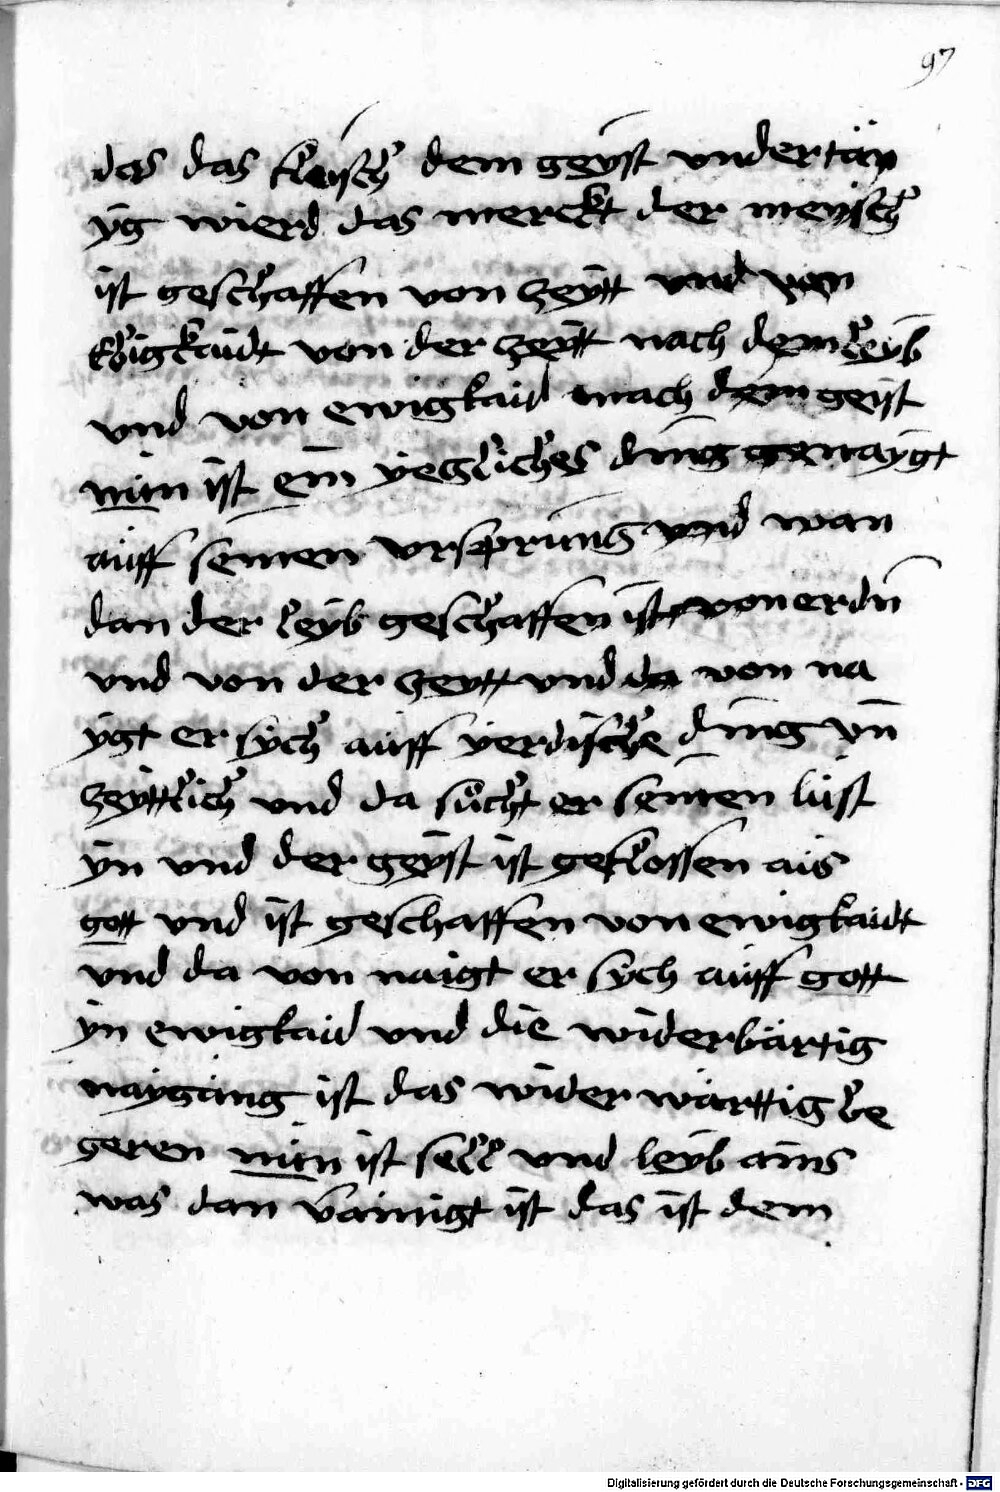 97
das das flaisch dem geyst vndertän
yg wierd das merckt der mensch
ist geschaffen von zeytt vnd von
Ebigkaidt von der zeytt nach dem leyb
vnd von ewigkaid nach dem geist
nun ist ein yegliches ding genaygt
auff seinen vrsprung vnd wan
dan der leyb geschaffen ist von erdn
vnd von der zeytt vnd da von na
ygt er sych auff yerdische ding vn̄
zeyttlich vnd da sucht er seinen lust
yn vnd der geyst ist geflossen aus
gott vnd ist geschaffen von ewigkaidt
vnd da von naigt er sych auff gott
yn ewigkaid vnd die widerbärtig
naygung ist das widerwärttig be
geren nun ist sell vnd leyb ains
was dan verainigt ist das ist dem
Digitalisierung gefördert durch die Deutsche Forschungsgemeinschaft - DFG